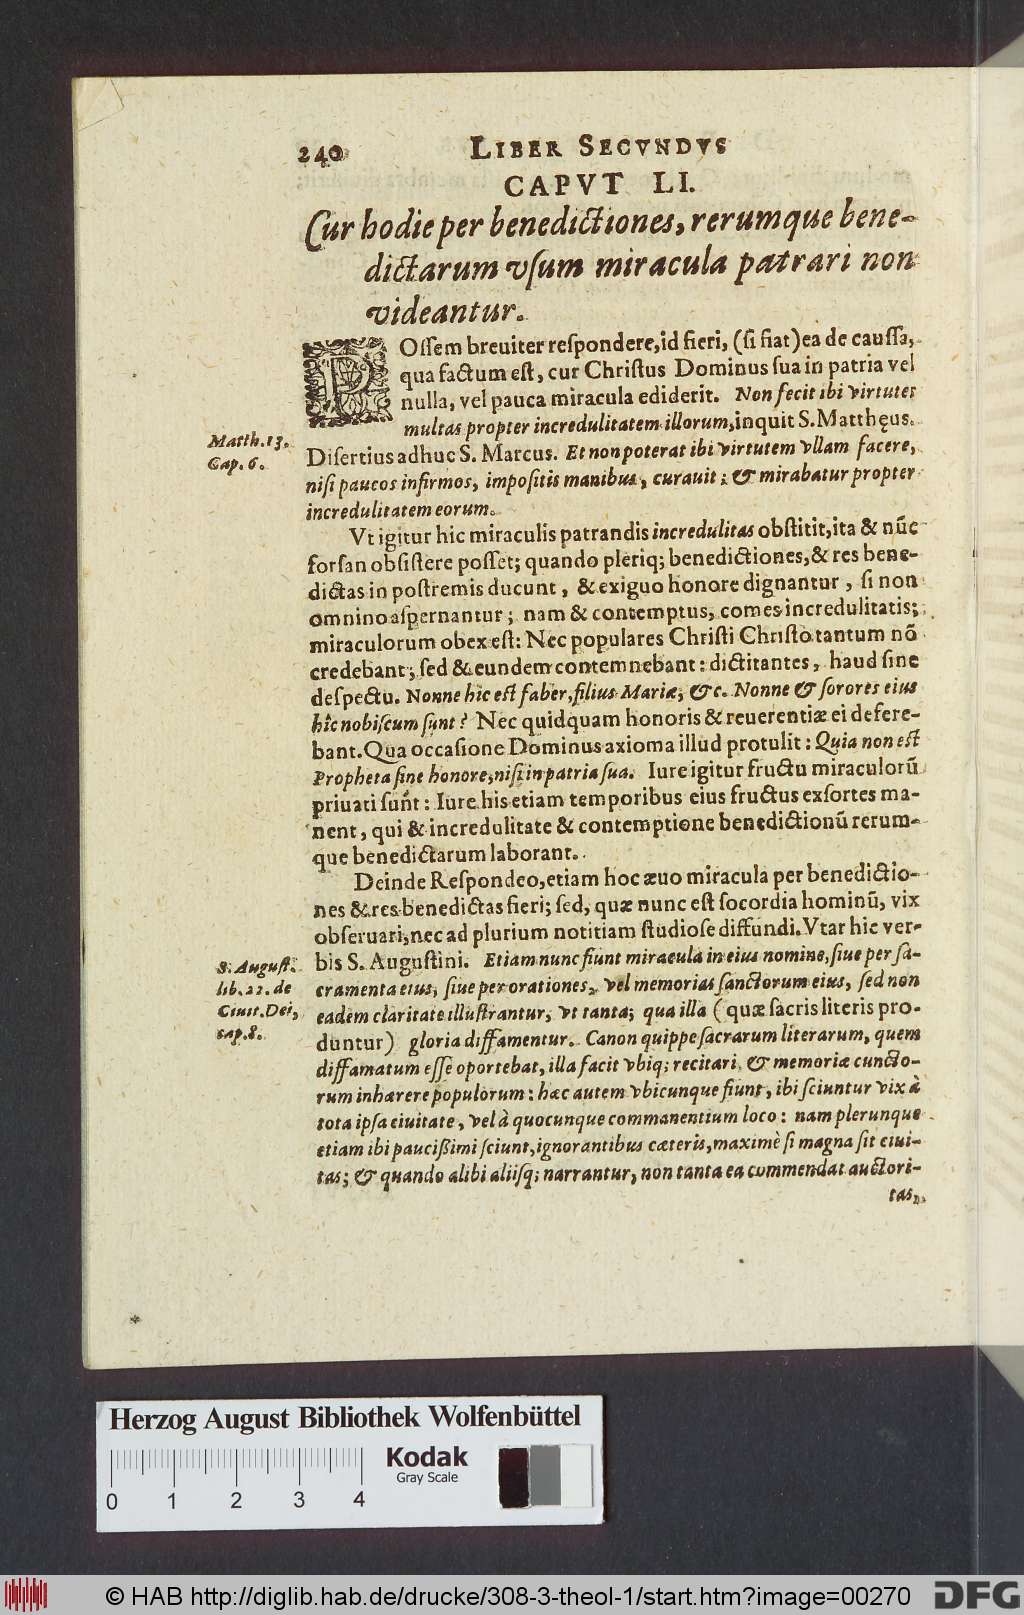 240 LIBER SECVNDVS
CAPVT LI.
Cur hodie per benedictiones, rerumque bene-
dictarum vſum miracula patrari non
videantur.
POſſem breuiter reſpondere, id fieri, (ſi fiat) ea de cauſſa,
qua factum eſt, cur Chriſtus Dominus ſua in patria vel
nulla, vel pauca miracula ediderit. Non fecit ibi virtutes
multas propter incredulitatem illorum, inquit S. Matthęus.
Matth. 13.
Cap. 6.
Diſertius adhuc S. Marcus. Et non poterat ibi virtutem vllam facere,
niſi paucos infirmos, impoſitis manibus, curauit: & mirabatur propter
incredulitatem eorum.
Vt igitur hic miraculis patrandis incredulitas obſtitit, ita & nũc
forſan obſiſtere poſſet; quando pleriq; benedictiones, & res bene-
dictas in poſtremis ducunt, & exiguo honore dignantur, ſi non
omnino aſpernantur; nam & contemptus, comes incredulitatis;
miraculorum obex eſt: Nec populares Chriſti Chriſto tantum nõ
credebant; ſed & eundem contemnebant: dictitantes, haud ſine
deſpectu. Nonne hic eſt faber, filius Mariæ, &c. Nonne & ſorores eius
hîc nobiſcum ſunt? Nec quidquam honoris & reuerentiæ ei defere-
bant. Qua occaſione Dominus axioma illud protulit: Quia non eſt
Propheta ſine honore, niſi in patria ſua. Iure igitur fructu miraculorũ
priuati ſunt: Iure his etiam temporibus eius fructus exſortes ma-
nent, qui & incredulitate & contemptione benedictionũ rerum-
que benedictarum laborant.
Deinde Reſpondeo, etiam hoc æuo miracula per benedictio-
nes & res benedictas fieri; ſed, quæ nunc eſt ſocordia hominũ, vix
obſeruari, nec ad plurium notitiam ſtudioſe diffundi. Vtar hic ver-
bis S. Auguſtini. Etiam nunc fiunt miracula in eius nomine, ſiue per ſa-
S. Auguſt.
lib. 22. de
Ciuit. Dei,
cap. 8.
cramenta eius, ſiue per orationes, vel memorias ſanctorum eius, ſed non
eadem claritate illuſtrantur, vt tanta, qua illa (quæ ſacris literis pro-
duntur) gloria diffamentur. Canon quippe ſacrarum literarum, quem
diffamatum eſſe oportebat, illa facit vbiq; recitari, & memoriæ cuncto-
rum inhærere populorum: hæc autem vbicunque fiunt, ibi ſciuntur vix à
tota ipſa ciuitate, vel à quocunque commanentium loco: nam plerunque
etiam ibi pauciſſimi ſciunt, ignorantibus cæteris, maximè ſi magna ſit ciui-
tas; & quando alibi aliiſq; narrantur, non tanta ea commendat auctori-
tas,
Herzog August Bibliothek Wolfenbüttel
Kodak
Gray Scale
0 1 2 3 4
© HAB http://diglib.hab.de/drucke/308-3-theol-1/start.htm?image=00270 DFG